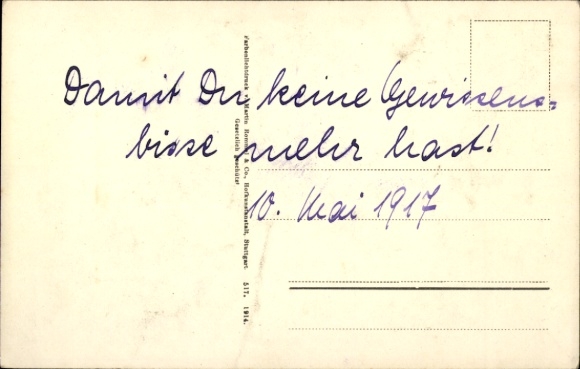 Damit Du keine Gewissens-
bisse mehr hast!
10. Mai 1917
Farbenlichtdruck v. Martin Rommel & Co., Hofkunstanstalt, Stuttgart. 517. 1914.
Gesetzlich geschützt